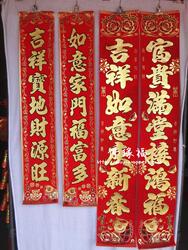 吉祥寶地財源旺
如意家門福富多
吉祥如意新春
富貴滿堂接鴻福